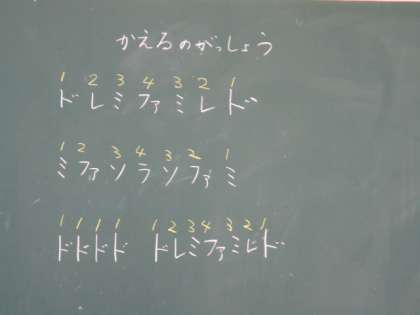 かえるのがっしょう
1 2 3 4 3 2 1
ドレミファミレド
1 2 3 4 3 2 1
ミファソラソファミ
1 1 1 1 1 2 3 4 3 2 1
ドドドド ドレミファミレド